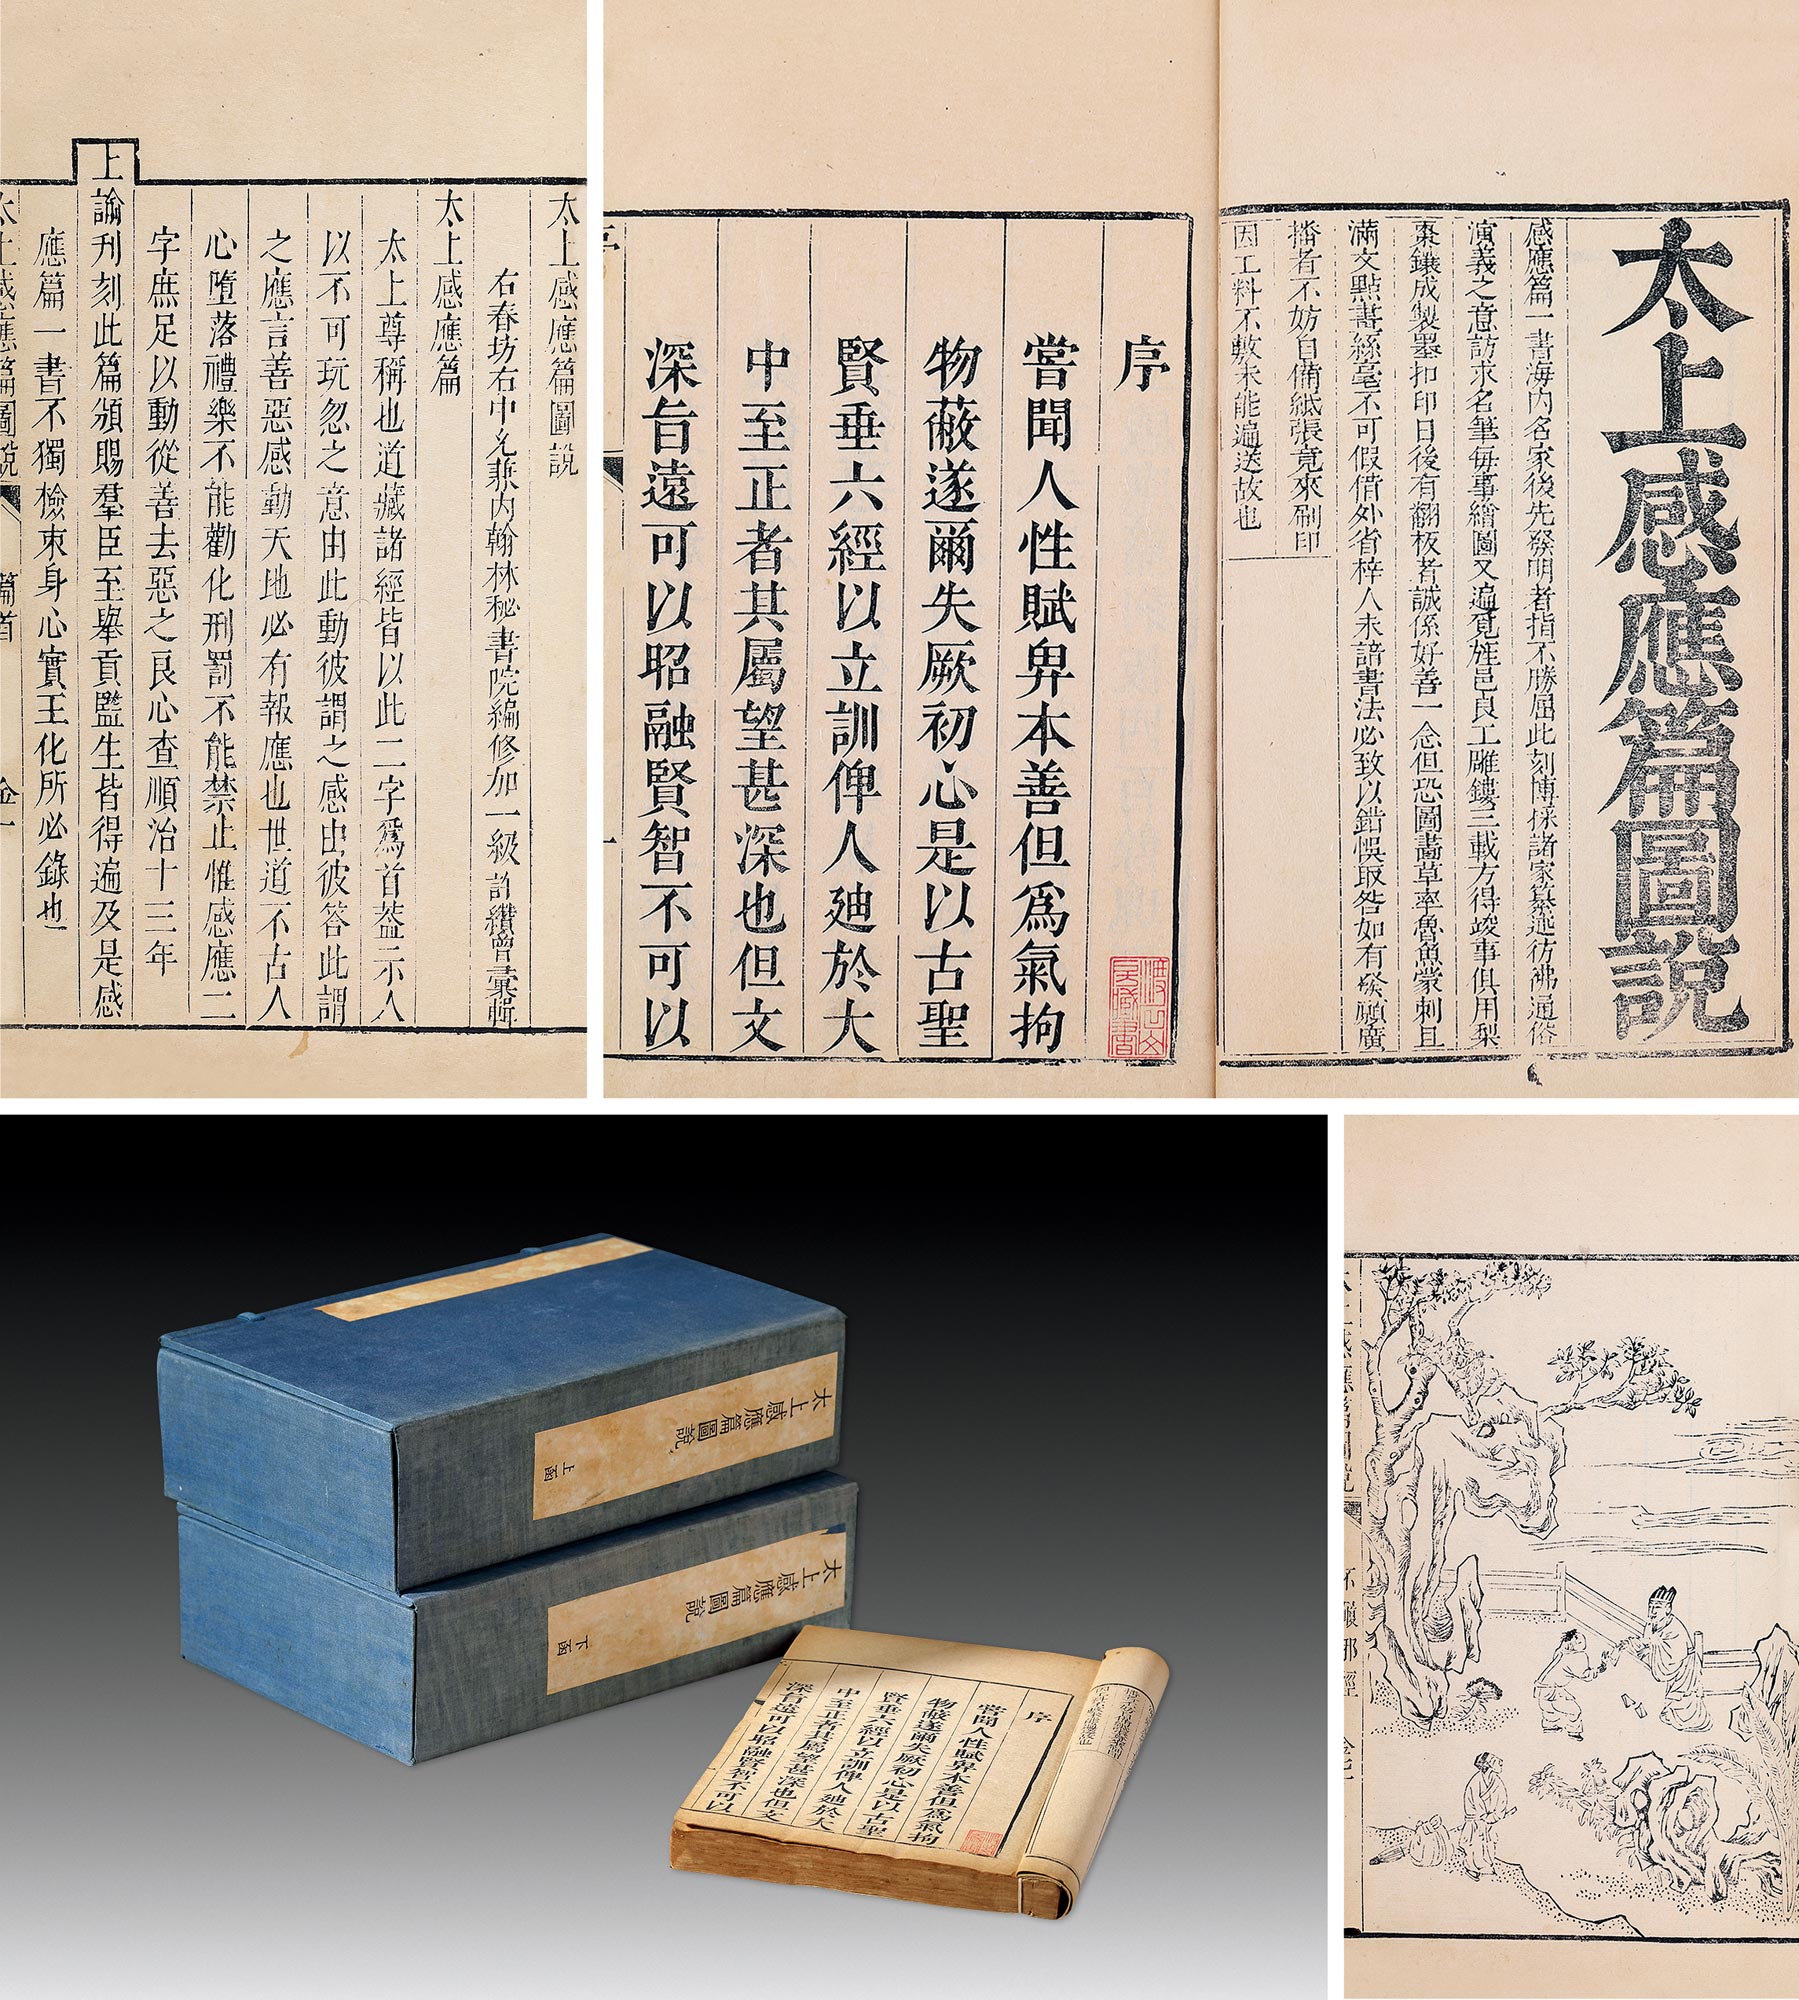 太上感應篇圖說
右春坊右中允兼內翰林秘書院編修加一級許纘曾彙輯
太上感應篇
太上尊稱也道藏諸經皆以此二字爲首葢示人
以不可玩忽之意由此動彼謂之感由彼答此謂
之應言善惡感動天地必有報應也世道不古人
心墮落禮樂不能勸化刑罰不能禁止惟感應二
字庶足以動從善去惡之良心查順治十三年
上諭刋刻此篇頒賜羣臣至舉貢監生皆得遍及是感
應篇一書不獨檢束身心實王化所必錄也
太上感應篇圖說 篇首 金一
太上感應篇圖說
感應篇一書海內名家後先發明者指不勝屈此刻博採諸家纂述彷彿通俗
演義之意訪求名筆每事繪圖又遍覓旌邑良工雕鏤三載方得竣事俱用梨
棗鐫成製墨扣印日後有翻板者誠係好善一念但恐圖畵草率魯魚蒙刺且
滿文點畫絲毫不可假借外省梓人未諳書法必致以錯悞取咎如有發願廣
播者不妨自備紙張竟來刷印
因工料不敷未能遍送故也
序
嘗聞人性賦畀本善但爲氣拘
物蔽遂爾失厥初心是以古聖
賢垂六經以立訓俾人廸於大
中至正者其屬望甚深也但文
深旨遠可以昭融賢智不可以
序 一
太上感應篇圖說 上函
太上感應篇圖說 下函
序
嘗聞人性賦畀本善但爲氣拘
物蔽遂爾失厥初心是以古聖
賢垂六經以立訓俾人廸於大
中至正者其屬望甚深也但文
深旨遠可以昭融賢智不可以
太上感應篇圖說